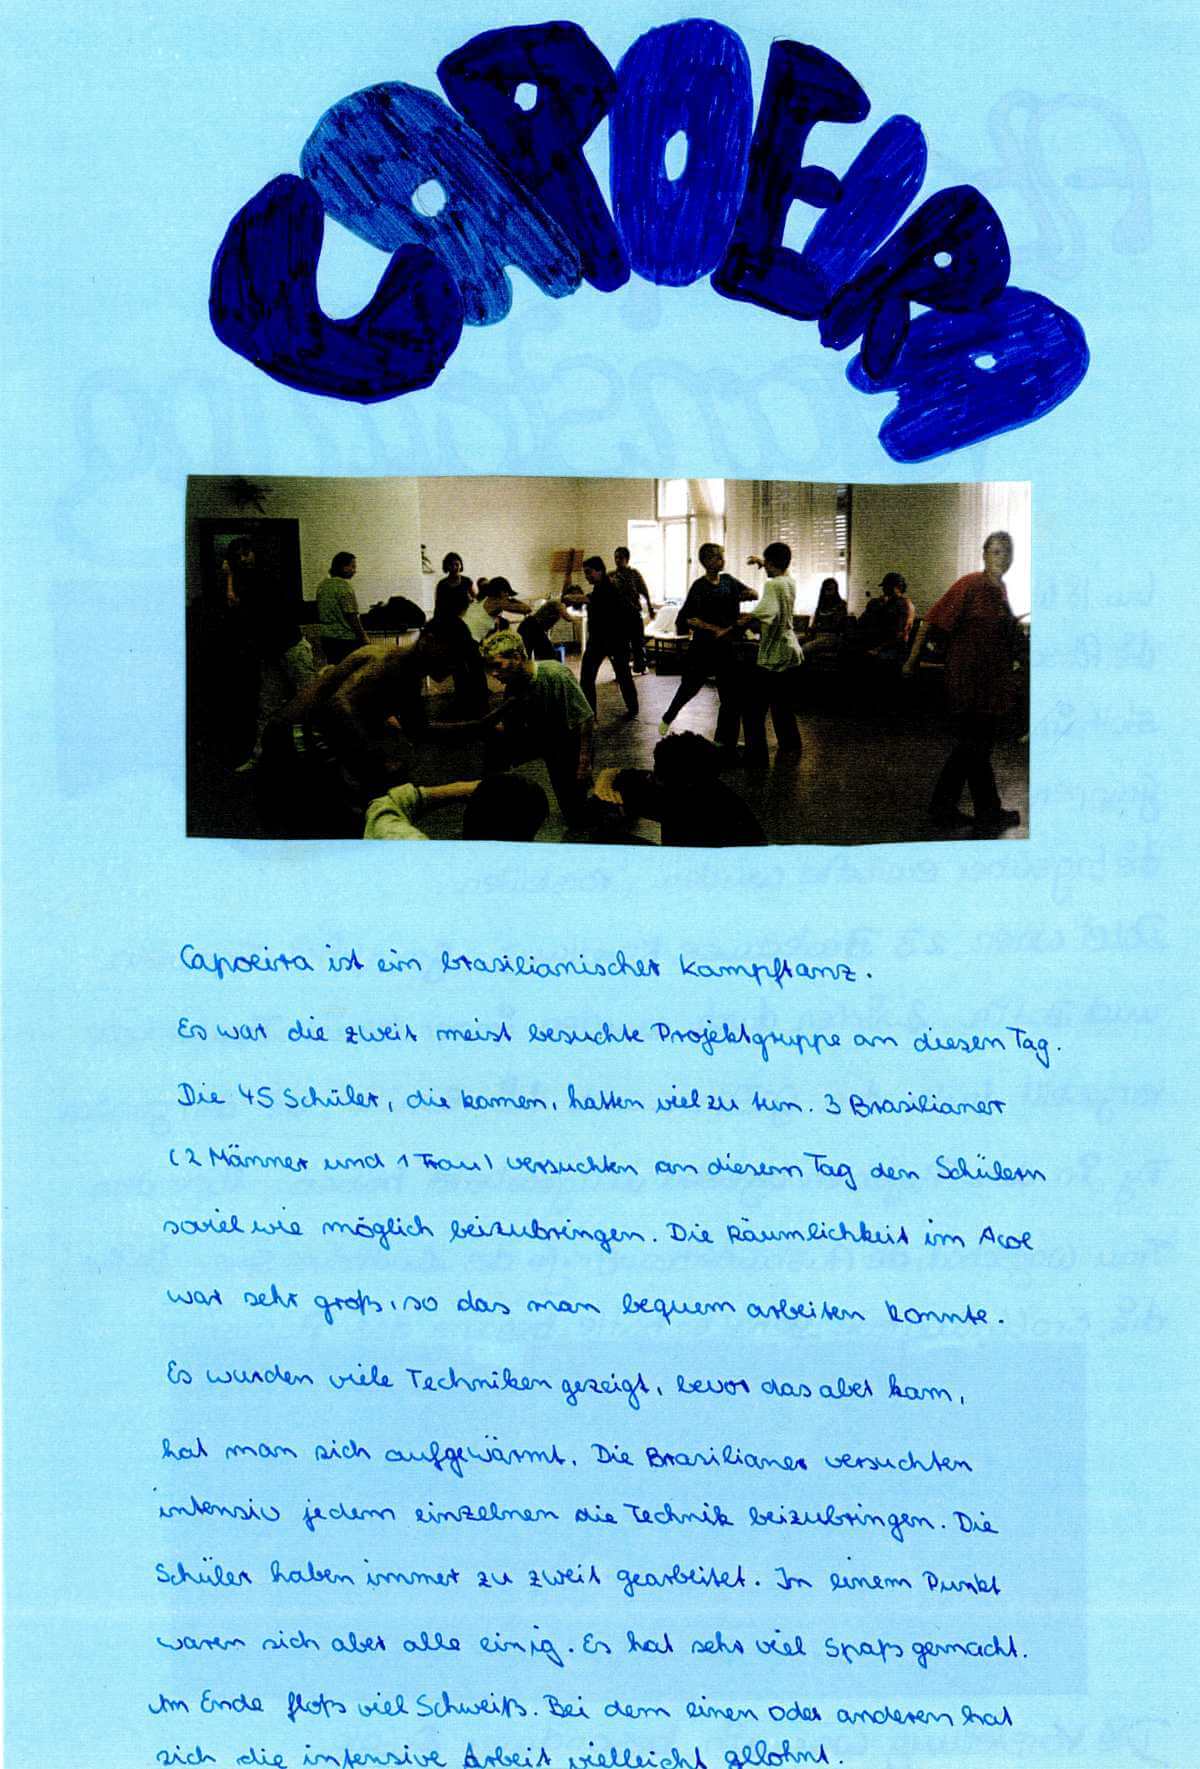 CAPOEIRA
Capoeira ist ein brasilianischer Kampftanz.
Es war die zweit meist besuchte Projektgruppe an diesen Tag.
Die 45 Schüler, die kamen, hatten viel zu tun. 3 Brasilianer
(2 Männer und 1 Frau) versuchten an diesem Tag den Schülern
soviel wie möglich beizubringen. Die Räumlichkeit im Acoe
war sehr groß, so das man bequem arbeiten konnte.
Es wurden viele Techniken gezeigt, bevor das aber kam,
hat man sich aufgewärmt. Die Brasilianer versuchten
intensiv jedem einzelnen die Technik beizubringen. Die
Schüler haben immer zu zweit gearbeitet. In einem Punkt
waren sich aber alle einig. Es hat sehr viel Spaß gemacht.
Am Ende floß viel Schweiß. Bei dem einen oder anderen hat
sich die intensive Arbeit vielleicht gelohnt.